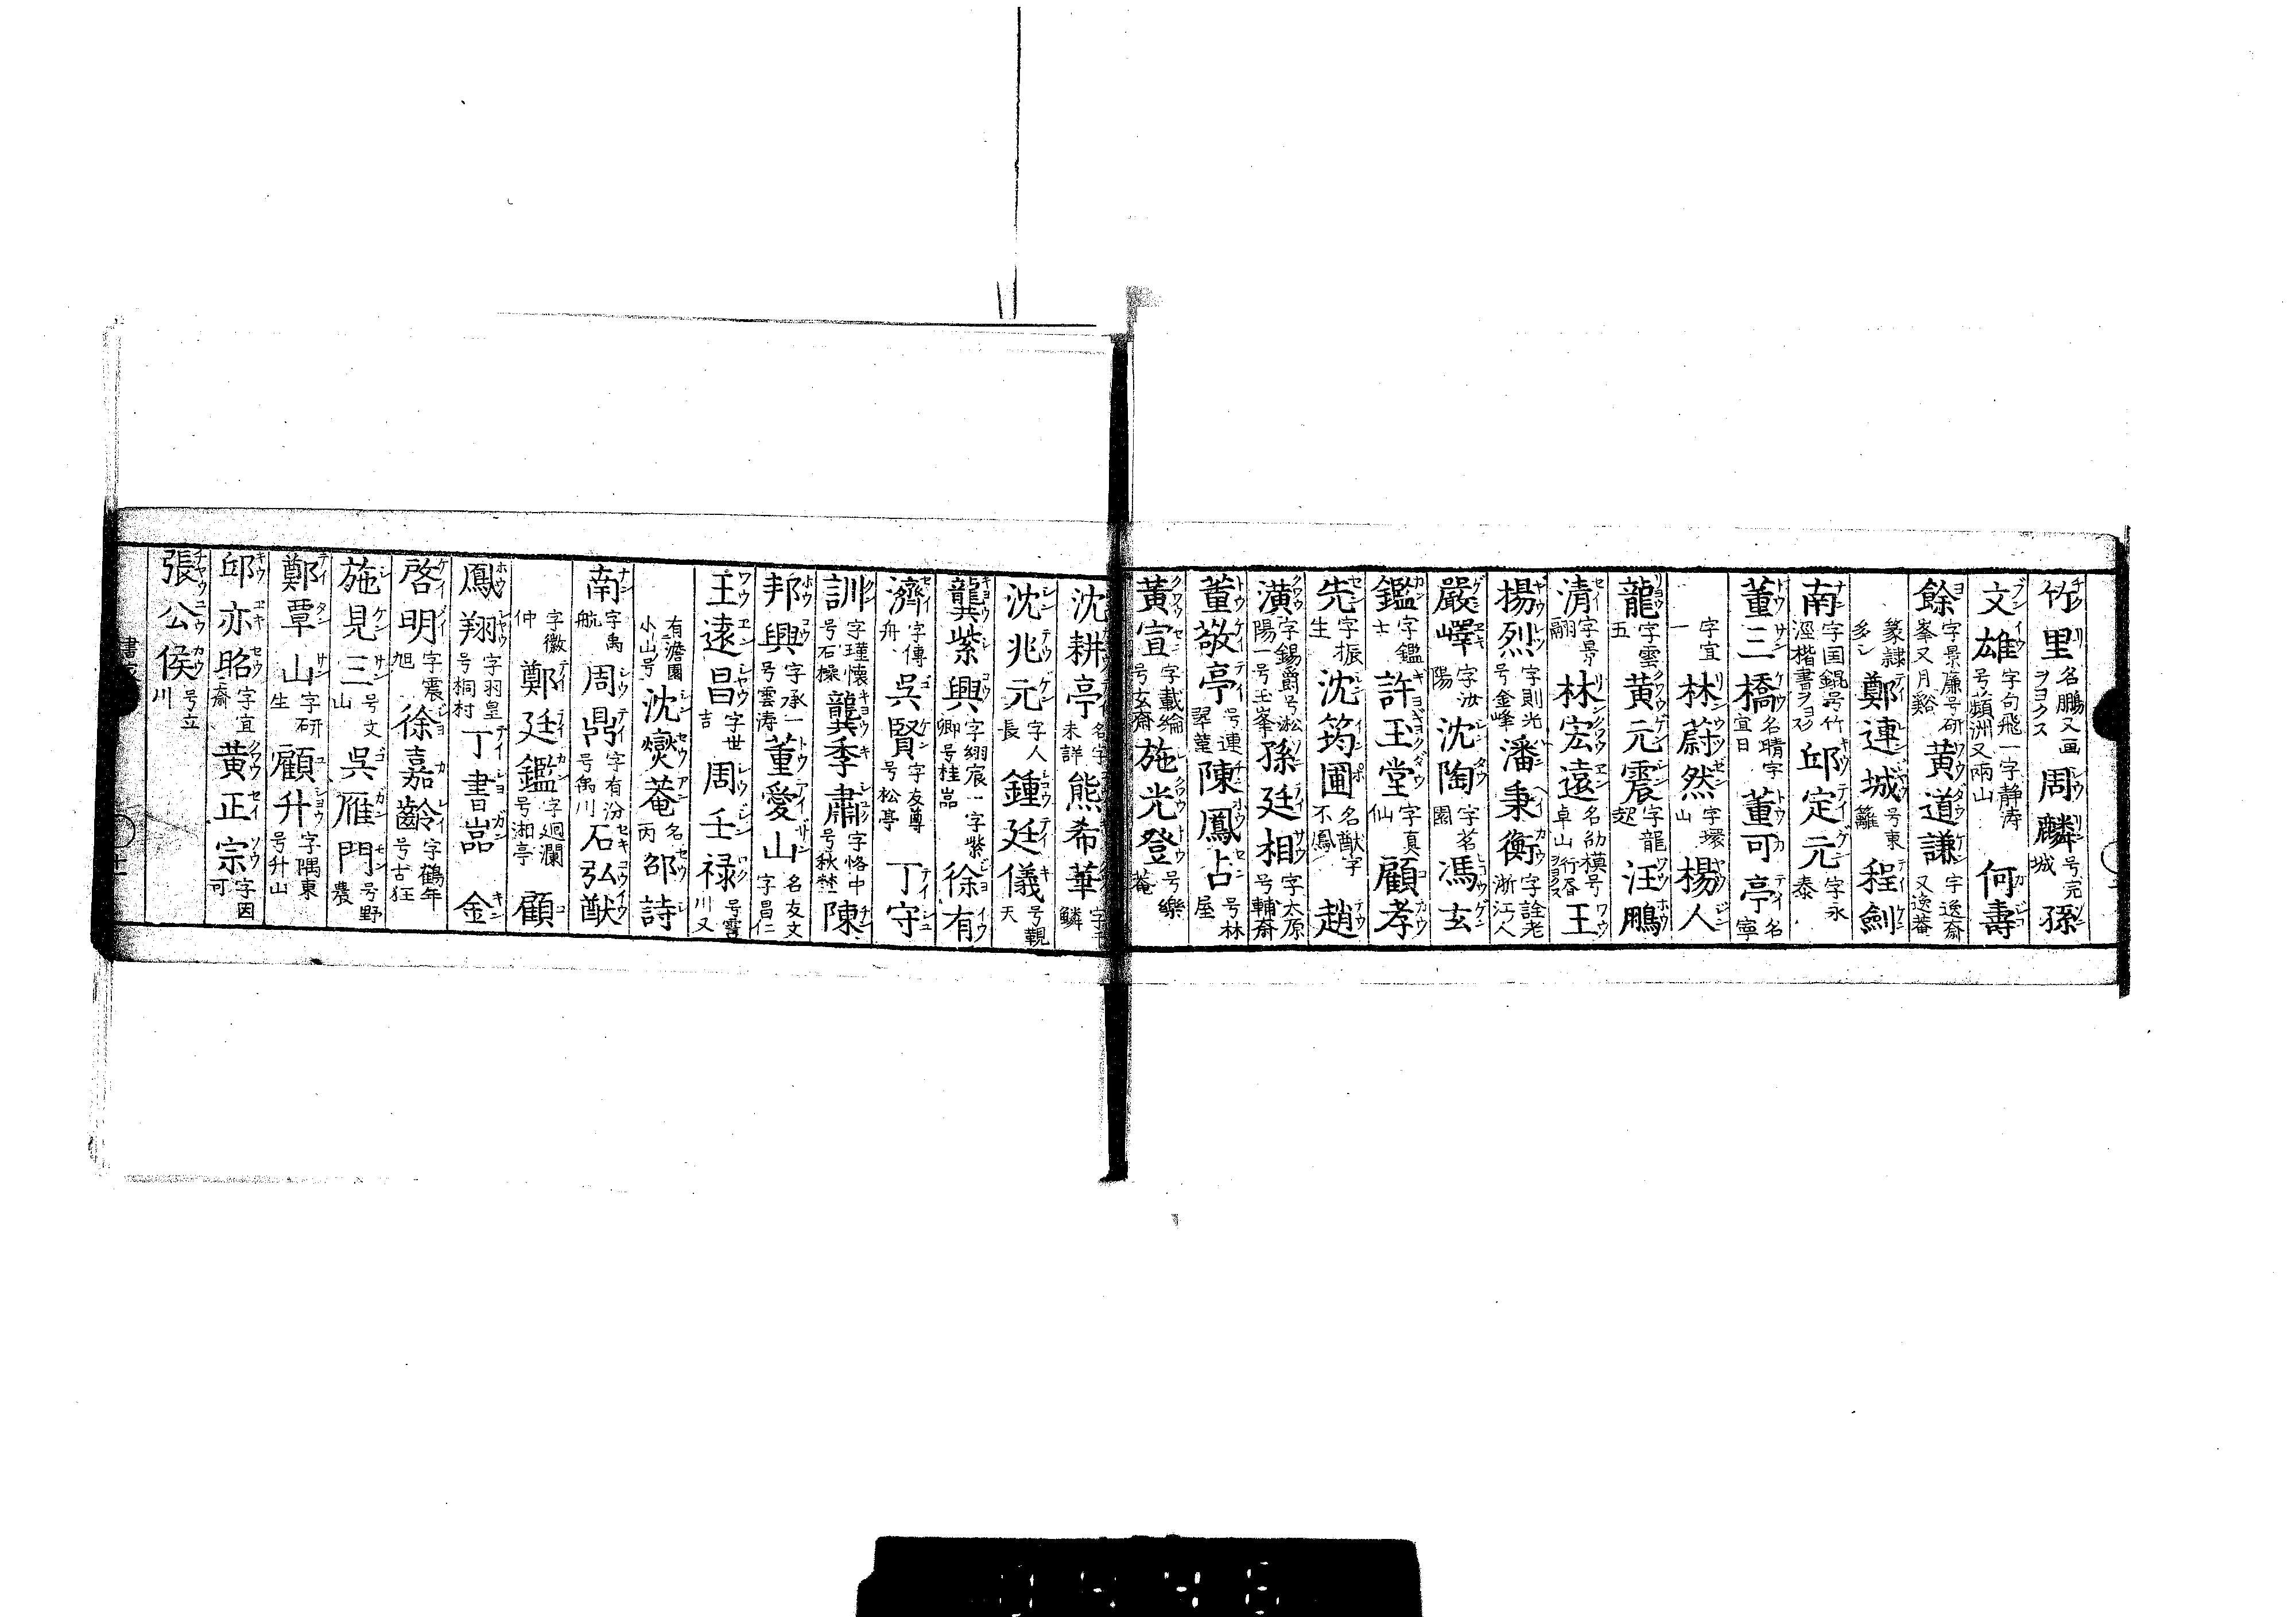 竹里名鵬又画ヲヨクス周麟号完城孫
文雄字句飛一字静涛号蘋洲又雨山何壽
餘字景廉号研峯又月谿黄道謙字逸斎又逡菴
篆隷多シ鄭連城号東籬程劍
南字国錕号竹涇楷書ヲヨス邱定元字永泰
董三橋名晴字宜日董可亭名寧
字宜一林蔚然字環山楊人
龍字雲五黄元震字龍起汪鵬
清字景翮林宏遠名幼模号卓山行唇ヲヨクス王
楊烈字則光号金峰潘秉衡字詮老浙江人
嚴嶧字汝陽沈陶字茗園馮玄
鑑字鑑士許玉堂字真仙顧孝
先字振生沈筠圃名猷字不鳳趙
潢字錫爵号淞陽一号玉峯孫廷相字太原号輔斎
董敬亭号連翠董陳鳳占号林屋
黄宣字載綸号玄斎施光登号樂菴
沈耕亭名字未詳熊希華
沈兆元字人長鍾廷儀号覲天
龔紫興字翊宸一字紫卿号桂嵒徐有
濟字傳舟吳賢字友尊号松亭丁守
訓字瑾懐号石操龔季肅字恪中号秋埜陳
邦興字承一号雲涛董愛山名友文字昌仁
王遠昌字世吉周壬禄号雪川又
有澹園小山号沈爕菴名丙邵詩
南字禹航周鼎字有汾号禹川石弘猷
字徽仲鄭廷鑑字廻瀾号湘亭顧
鳳翔字羽皇号桐村丁書嵒金
啓明字震旭徐嘉齡字鶴年号古狂
施見三号文山吳雁門号野農
鄭覃山字研生顧升字隅東号升山
邱亦昭字宜斎黄正宗字因可
張公侯号立川